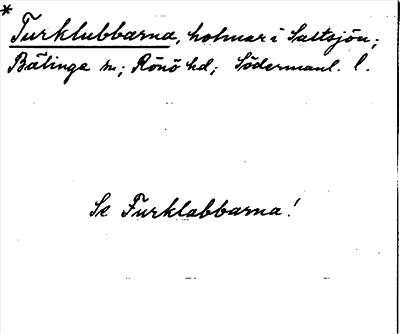 *
Turklubbarna, holmar i Saltsjön;
Bälinge sn; Rönö hd; Södermanl. l.
Se Furklabbarna!